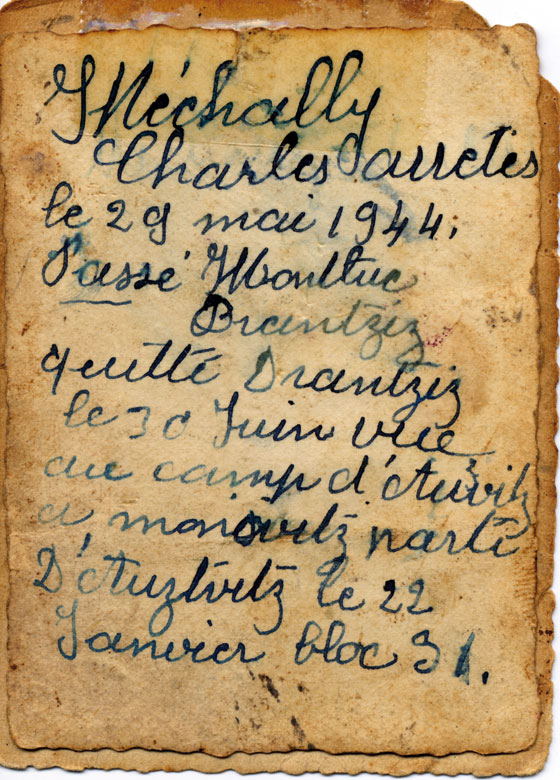 Méchally
Charles arretes
le 29 mai 1944.
Passé Montluc
Drantziz
quitté Drantziz
le 30 Juin vue
au camp d'Auvitz
a monovitz parti
D'Auztvitz le 22
Janvier bloc 31.